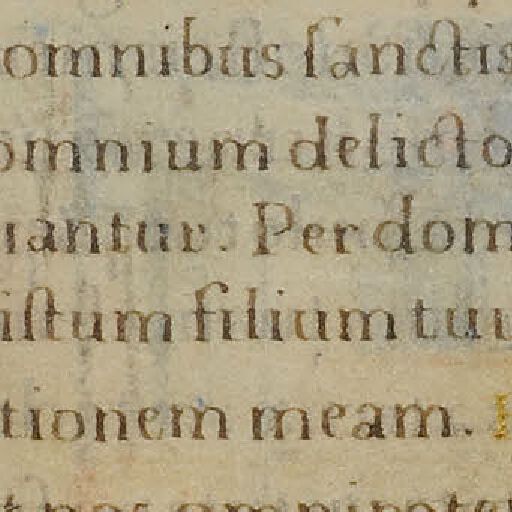 omnibus sanctis
omnium delicto
iantur. Per dom
istum filium tuu
tionem meam.